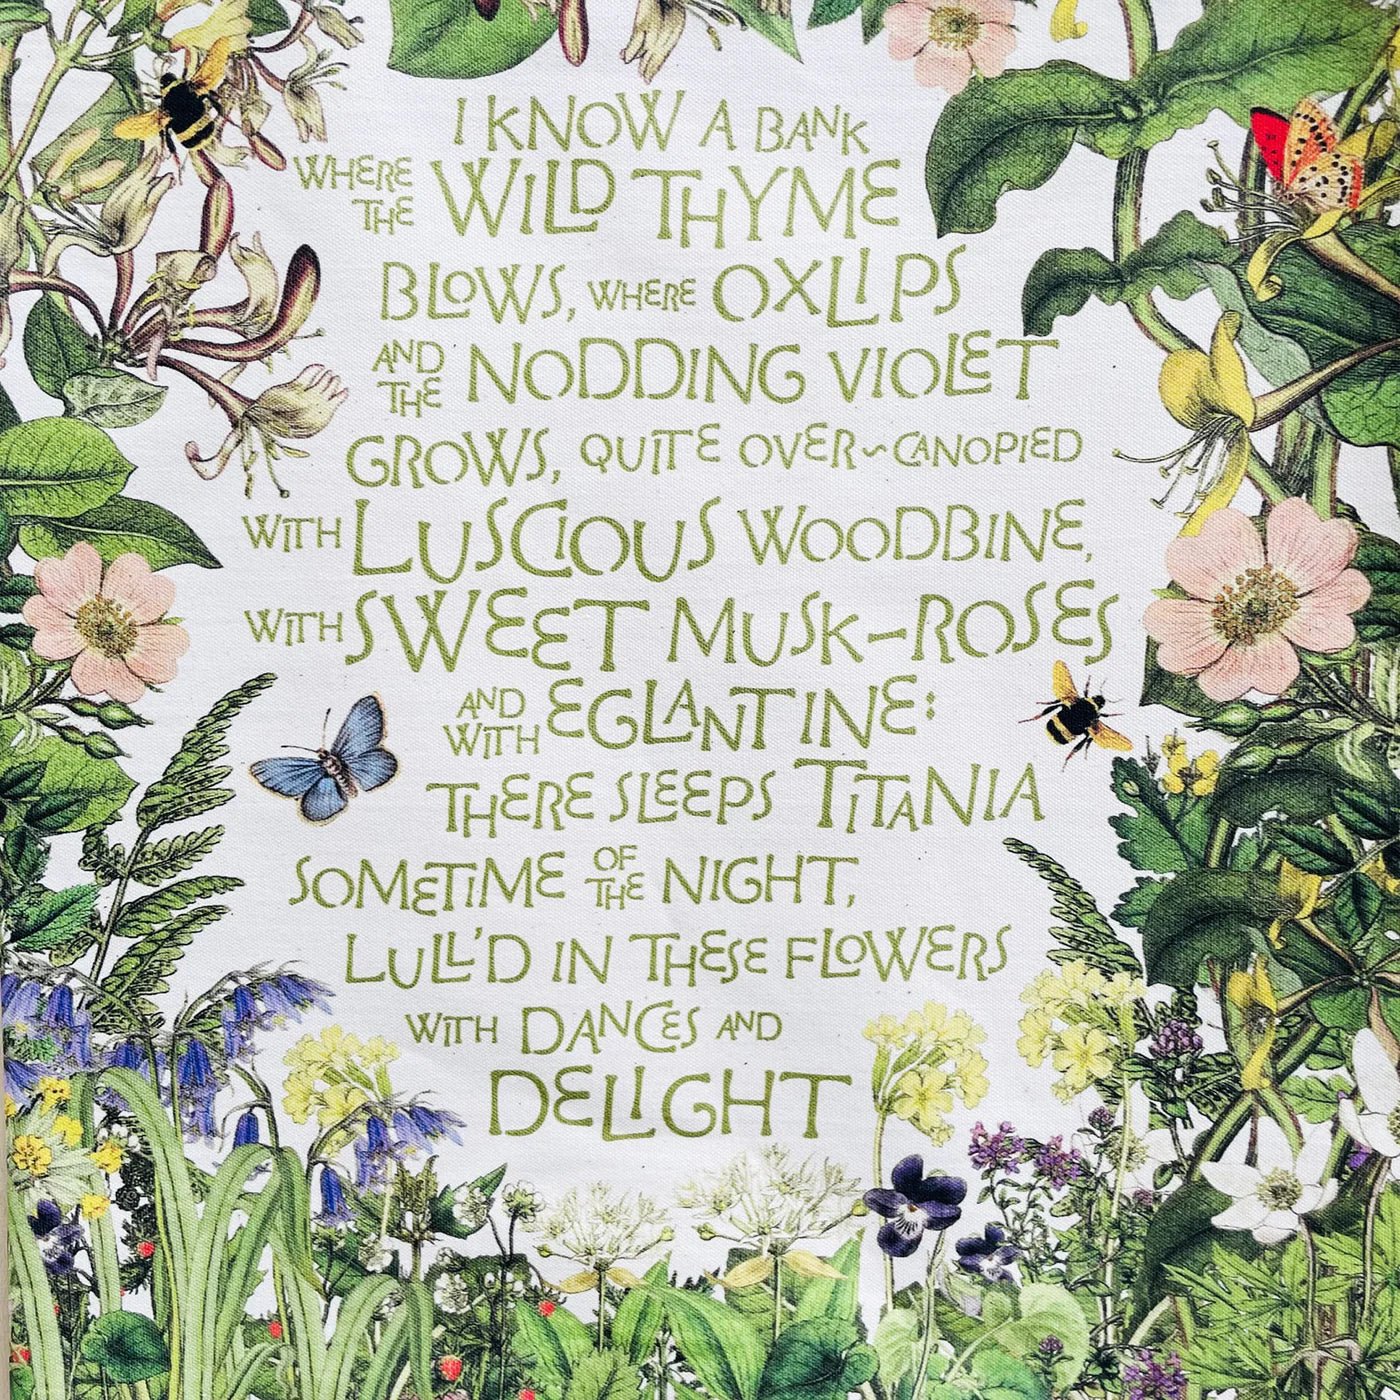 I KNOW A BANK
WHERE THE WILD THYME
BLOWS, WHERE OXLIPS
AND THE NODDING VIOLET
GROWS, QUITE OVER~CANOPIED
WITH LUSCIOUS WOODBINE,
WITH SWEET MUSK-ROSES
AND WITH EGLANTINE:
THERE SLEEPS TITANIA
SOMETIME OF THE NIGHT,
LULL'D IN THESE FLOWERS
WITH DANCES AND
DELIGHT